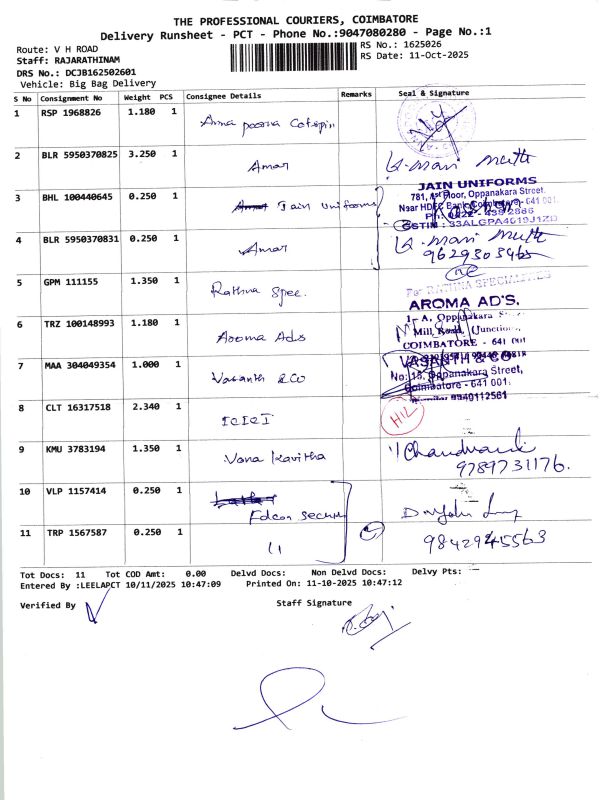 THE PROFESSIONAL COURIERS, COIMBATORE
Delivery Runsheet - PCT - Phone No.:9047080280 - Page No.:1
Route: V H ROAD
RS No.: 1625026
Staff: RAJARATHINAM
RS Date: 11-Oct-2025
DRS No.: DCJB162502601
Vehicle: Big Bag Delivery
S No Consignment No Weight PCS Consignee Details Remarks Seal & Signature
1 RSP 1968826 1.180 1 Anna poorna
2 BLR 5950370825 3.250 1 Amar
3 BHL 100440645 0.250 1 Jain Uniforms
JAIN UNIFORMS
781, 1st Floor, Oppanakara Street,
Near HDFC Bank, Coimbatore - 641 001.
GSTIN : 33ALGPA4019J1ZD
4 BLR 5950370831 0.250 1 Amar
9629303465
5 GPM 111155 1.350 1 Rathna Spec.
For RATHNA SPECIALITIES
6 TRZ 100148993 1.180 1 Aroma Ads
AROMA AD'S,
1-A, Oppanakara
Mill Road, (Junction),
COIMBATORE - 641 001
7 MAA 304049354 1.000 1 Vasanth & CO
VASANTH & CO
No: 18, Oppanakara Street,
Coimbatore - 641 001.
8 CLT 16317518 2.340 1 ICICI
9 KMU 3783194 1.350 1 Vona Kavitha
9789731176.
10 VLP 1157414 0.250 1 Edcon Secure
11 TRP 1567587 0.250 1 "
9842945563
Tot Docs: 11 Tot COD Amt: 0.00 Delvd Docs: Non Delvd Docs: Delvy Pts:
Entered By :LEELAPCT 10/11/2025 10:47:09 Printed On: 11-10-2025 10:47:12
Verified By Staff Signature